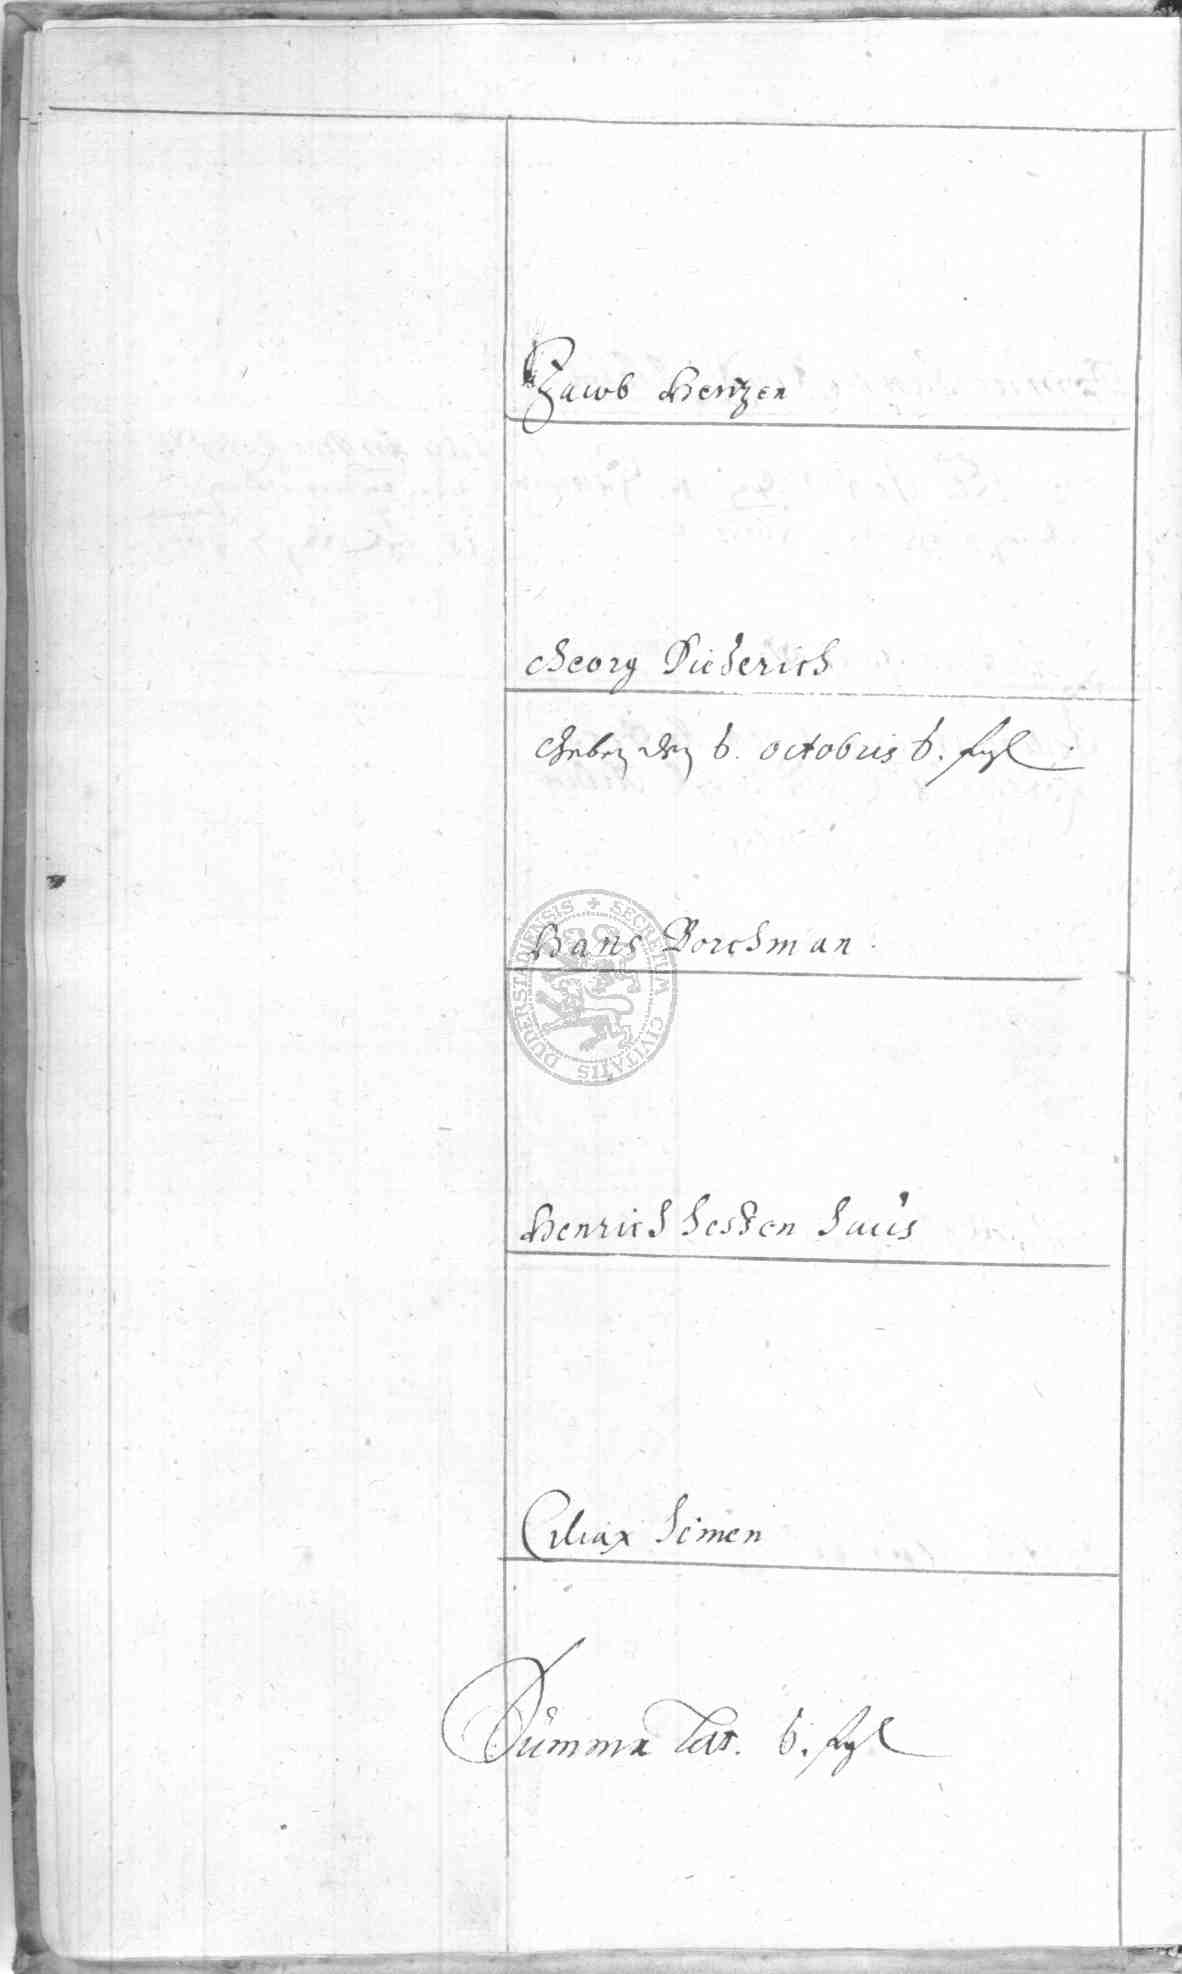 Jacob Hentzen
Georg Diederich
Geben den 6. octobris 6. ßgl
Hans Borchman
Henrich hesten haus
Ciliax Simen
Summa Lat. 6. ßgl
SECRETUM CIVITATIS DUDERSTADIENSIS